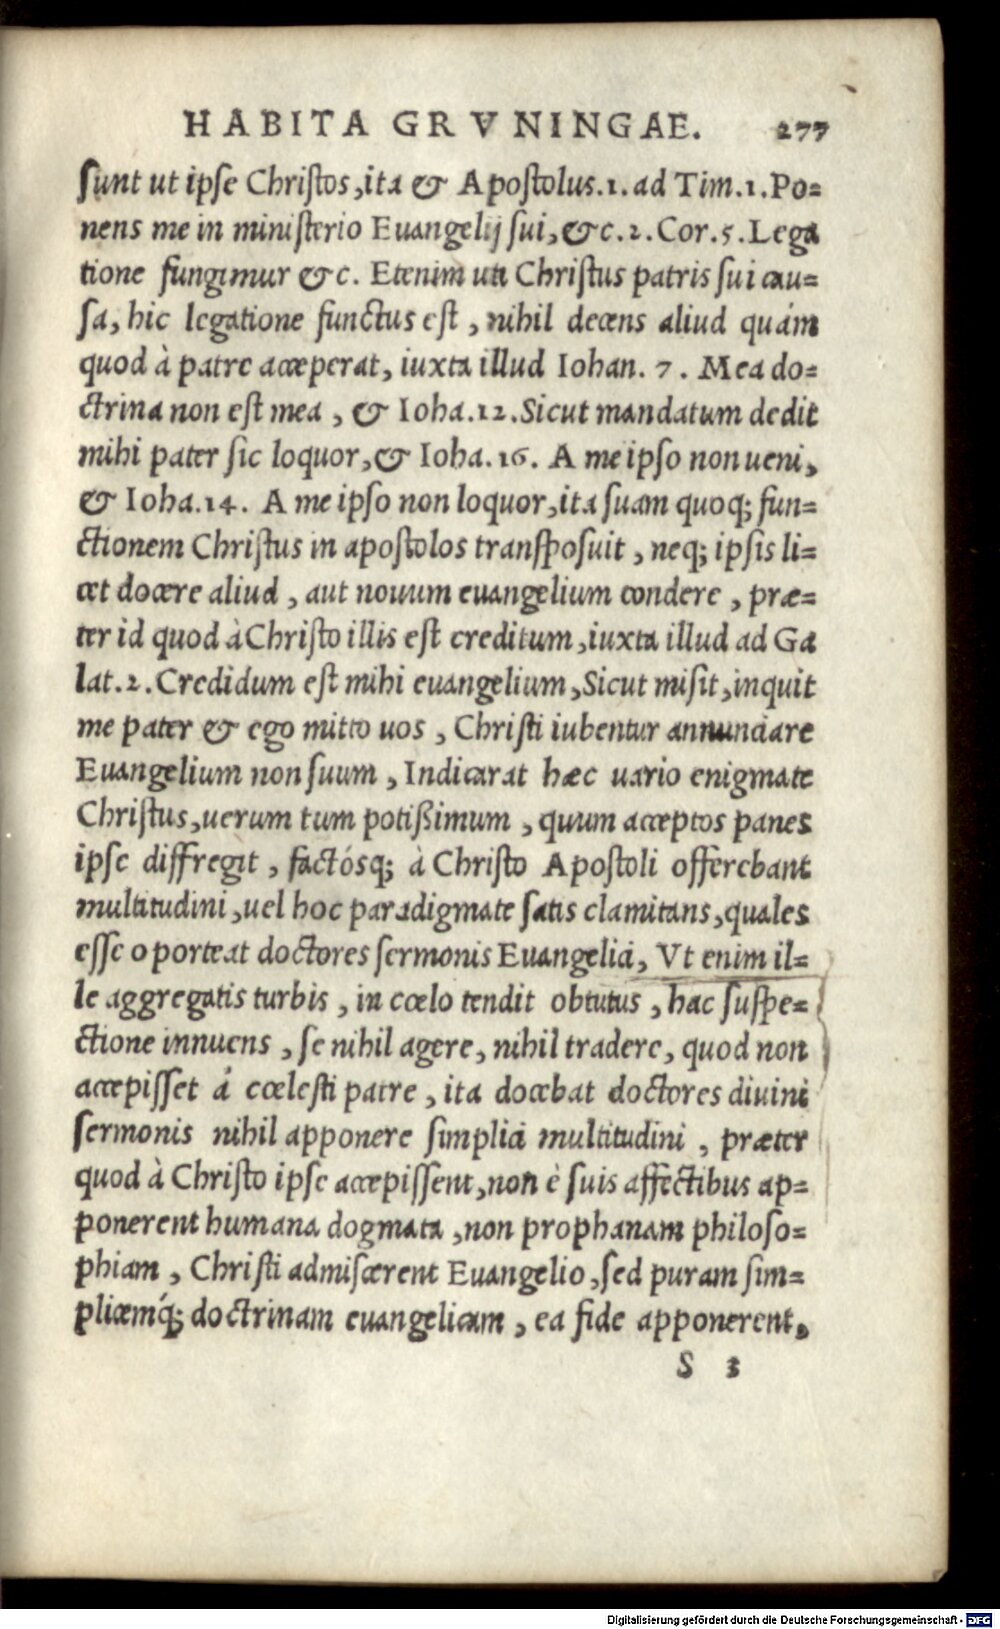 HABITA GRVNINGAE. 277
ſunt ut ipſe Chriſtos, ita & Apoſtolus.1. ad Tim.1. Po=
nens me in miniſterio Euangelij ſui, &c.2.Cor.5. Lega
tione fungimur &c. Etenim uti Chriſtus patris ſui cau=
ſa, hic legatione functus eſt, nihil docens aliud quám
quod à patre acceperat, iuxta illud Iohan. 7. Mea do=
ctrina non eſt mea, & Ioha.12. Sicut mandatum dedit
mihi pater ſic loquor, & Ioha.16. A me ipſo non ueni,
& Ioha.14. A me ipſo non loquor, ita ſuam quoq; fun=
ctionem Chriſtus in apoſtolos tranſpoſuit, neq; ipſis li=
cet docere aliud, aut nouum euangelium condere, præ=
ter id quod à Chriſto illis eſt creditum, iuxta illud ad Ga
lat.2. Credidum eſt mihi euangelium, Sicut miſit, inquit
me pater & ego mitto uos, Chriſti iubentur annunciare
Euangelium non ſuum, Indicarat hæc uario enigmate
Chriſtus, uerum tum potißimum, quum acceptos panes
ipſe diffregit, factósq; à Chriſto Apoſtoli offerebant
multitudini, uel hoc paradigmate ſatis clamitans, quales
eſſe oporteat doctores ſermonis Euangelici, Vt enim il=
le aggregatis turbis, in cœlo tendit obtutus, hac ſuſpe=
ctione innuens, ſe nihil agere, nihil tradere, quod non
accepiſſet á cœleſti patre, ita docebat doctores diuini
ſermonis nihil apponere ſimplici multitudini, præter
quod à Chriſto ipſe accepiſſent, non è ſuis affectibus ap=
ponerent humana dogmata, non prophanam philoſo=
phiam, Chriſti admiſcerent Euangelio, ſed puram ſim=
plicemq́; doctrinam euangelicam, ea fide apponerent,
S 3
Digitalisierung gefördert durch die Deutsche Forschungsgemeinschaft - DFG